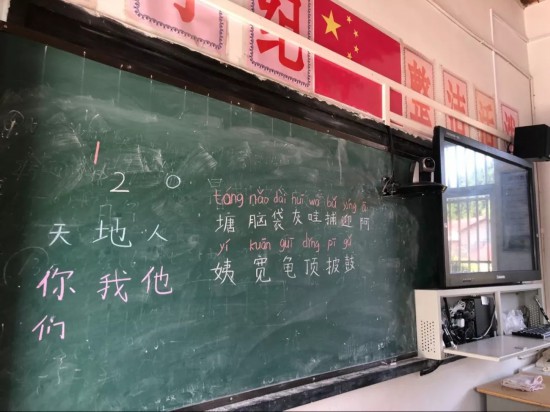 纪
1
2 0
天 地 人
你 我 他
们
táng nǎo dài huī wā bǔ yíng ā
塘 脑 袋 灰 哇 捕 迎 阿
yí kuān guī dǐng pī gǔ
姨 宽 龟 顶 披 鼓